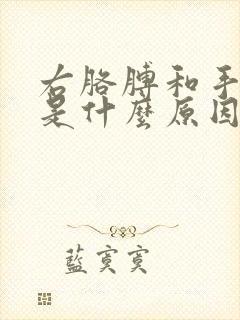 右胳膊和手
是什麼原因
藍寞寞